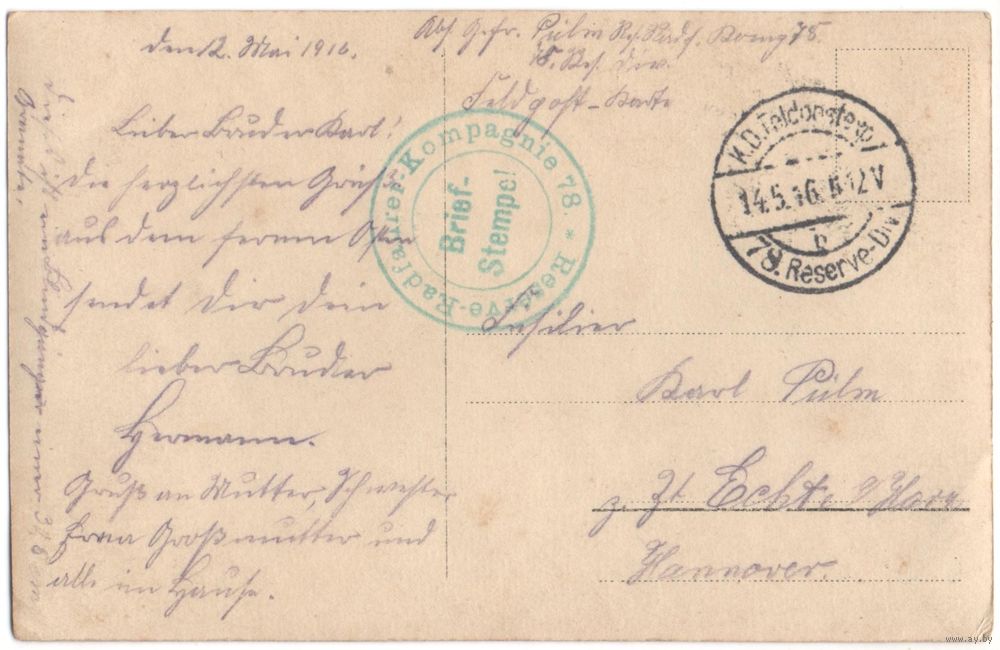 den 12. Mai 1916.
Abs. Gefr. Pülm Res. Radf. Komp 78.
78. Res. Div.
Feldpost-Karte
K.D. Feldpostexp.
14.5.16. 12V
b
78. Reserve-Div.
Reserve-Radfahrer-Kompagnie 78. *
Brief-
Stempel
Lieber Bruder Karl!
Die herzlichsten Grüße
aus dem fernen Osten
sendet Dir dein
lieber Bruder
Hermann.
Gruß an Mutter, Schwester
Erna Großmutter und
alle im Hause.
Füsilier
Karl Pülm
z. Zt Echte a/Harz
Hannover.
www.ay.by